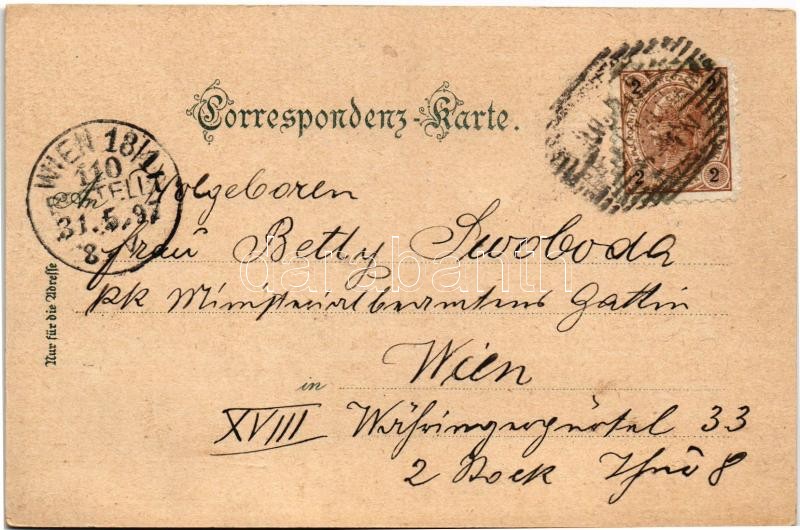 Correspondenz-Karte.
2 2
2 2
WIEN 18/1
110
BESTELLT
31.5.97
8
An Wolgeboren
Frau Betty Swoboda
kk Ministerialbeamtens Gattin
Wien
in
XVIII Währingergürtel 33
2 Stock Thür 8
Nur für die Adresse
darabanth